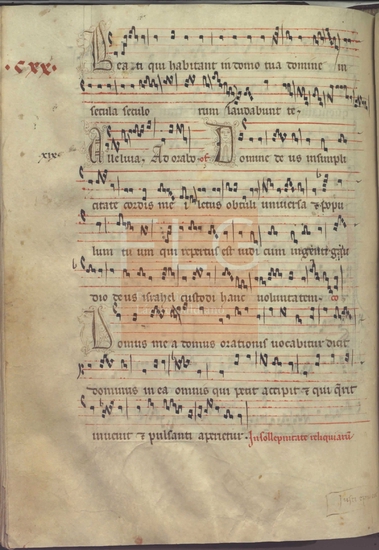 ·cxx·
Beati qui habitant in domo tua domine in
secula seculo rum laudabunt te.
xix
Alleluia. Adorabo. of Domine deus in simpli
citate cordis me i letus obtuli universa & popu
lum tu um qui repertus est vidi cum ingenti gau
dio deus israhel custodi hanc voluntatem. co
Domus me a domus orationis vocabitur dicit
dominus in ea omnis qui petit accipit & qui querit
invenit & pulsanti aperietur. In sollepnitate reliquiarum